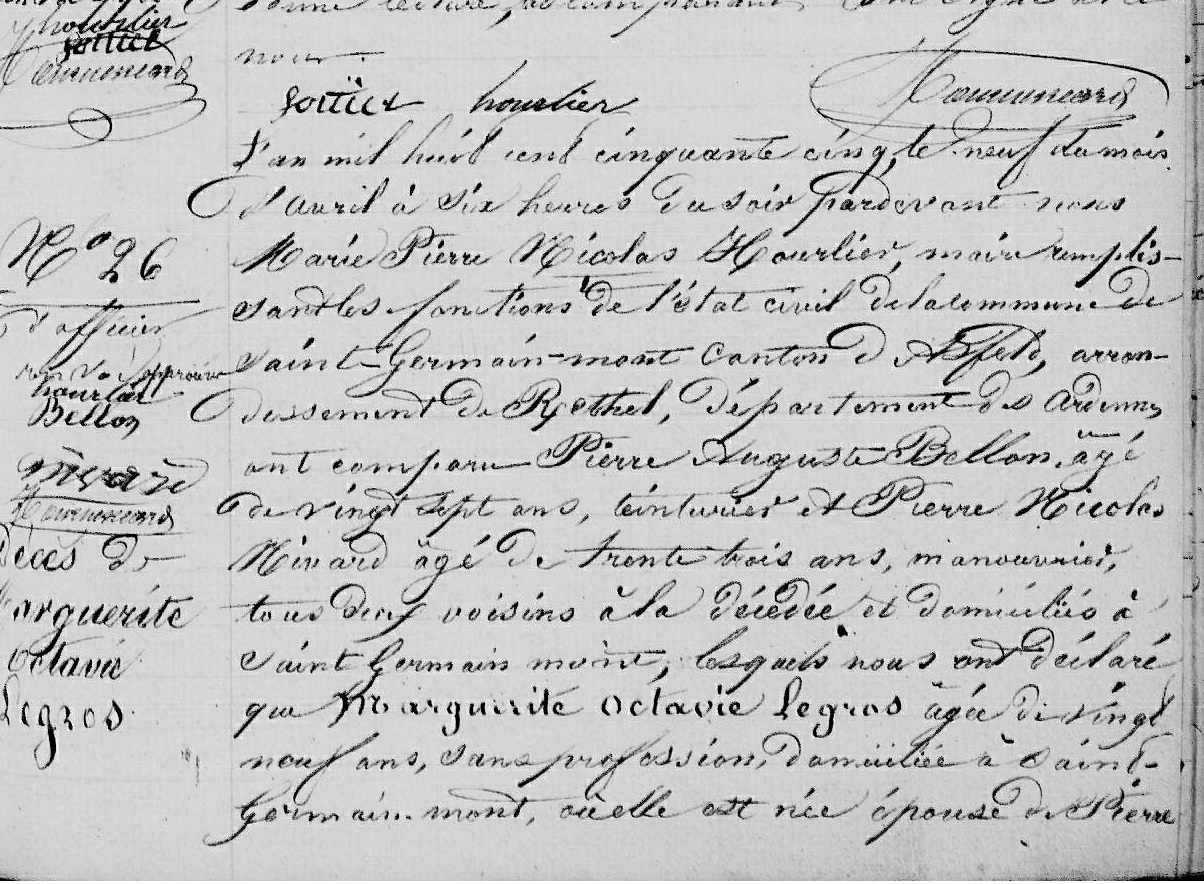 hourlier
nous.
hourlier
L'an mil huit cent cinquante cinq, le neuf du mois
d'avril à six heures du soir pardevant nous
Marie Pierre Nicolas Hourlier, maire remplis-
sant les fonctions de l'état civil de la commune de
Saint-Germain-mont canton d'Asfeld, arron-
dissement de Rethel, département des Ardennes
ont comparu Pierre Auguste Bellon, âgé
de vingt sept ans, teinturier et Pierre Nicolas
Nivard âgé de trente trois ans, manouvrier,
tous deux voisins à la décédée et domiciliés à
Saint Germain mont, lesquels nous ont déclaré
que Marguerite Octavie Legros âgée de vingt
neuf ans, sans profession, domiciliée à Saint-
Germain-mont, où elle est née épouse de Pierre
N° 26
d'officier
renvoi approuvé
hourlier
Bellon
nivard
Décès de
Marguerite
Octavie
Legros